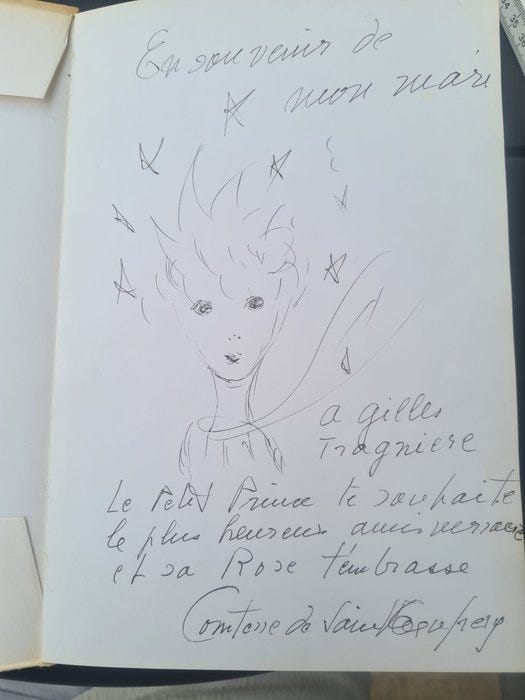 En souvenir de
mon mari
a gilles
Tragniere
Le Petit Prince te souhaite
le plus heureux anniversaire
et sa Rose t'embrasse
Comtesse de Saint Exupery